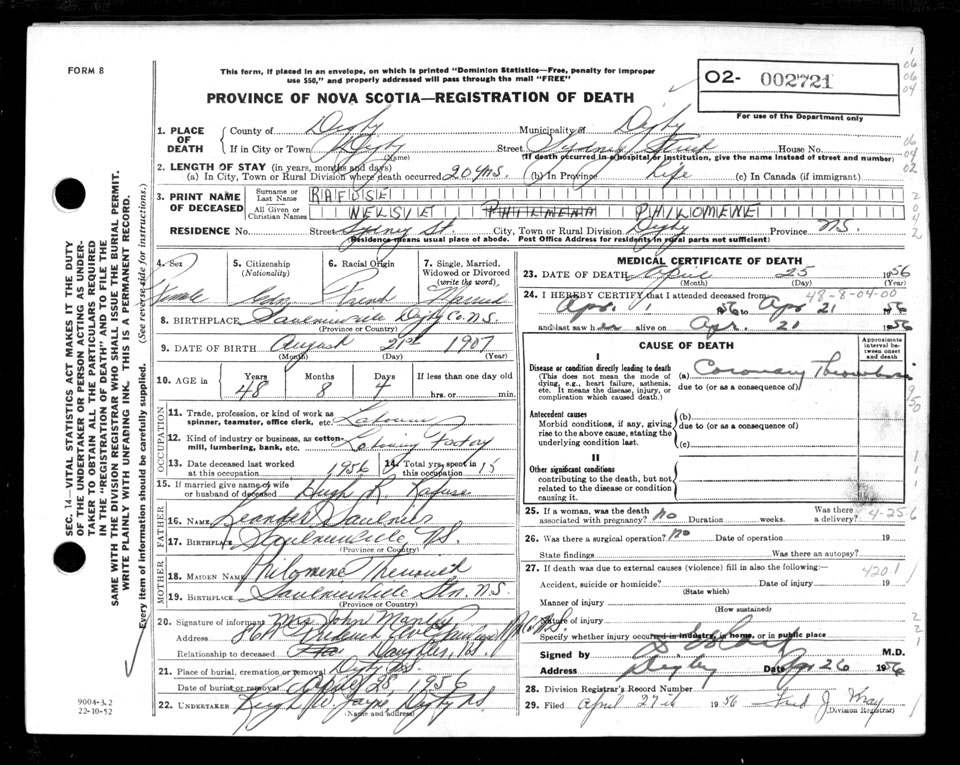 FORM 8
This form, if placed in an envelope, on which is printed "Dominion Statistics—Free, penalty for improper
use $50," and properly addressed will pass through the mail "FREE"
O2- 002721
For use of the Department only
PROVINCE OF NOVA SCOTIA—REGISTRATION OF DEATH
1. PLACE OF DEATH County of Digby Municipality of Digby
If in City or Town Digby (Name) Street Sydney Street House No.
(If death occurred in a hospital or institution, give the name instead of street and number)
2. LENGTH OF STAY (in years, months and days)
(a) In City, Town or Rural Division where death occurred 20 yrs. (b) In Province Life (c) In Canada (if immigrant)
3. PRINT NAME OF DECEASED Surname or Last Name RAFUSE
All Given or Christian Names NELSIE PHILMENA PHILOMENE
RESIDENCE No. Street Sydney St. City, Town or Rural Division Digby Province N.S.
(Residence means usual place of abode. Post Office Address for residents in rural parts not sufficient)
4. Sex Female
5. Citizenship (Nationality) Cdn.
6. Racial Origin French
7. Single, Married, Widowed or Divorced (write the word) Married
8. BIRTHPLACE Saulnierville Digby Co. N.S.
(Province or Country)
9. DATE OF BIRTH August 21st 1907
(Month) (Day) (Year)
10. AGE in Years 48 Months 8 Days 4 If less than one day old hrs. or min.
OCCUPATION
11. Trade, profession, or kind of work as spinner, teamster, office clerk, etc. Labourer
12. Kind of industry or business, as cotton-mill, lumbering, bank, etc. Factory
13. Date deceased last worked at this occupation 1956 14. Total yrs. spent in this occupation 15
15. If married give name of wife or husband of deceased Hugh R. Rafuse
FATHER
16. NAME Leander Saulnier
17. BIRTHPLACE Saulnierville N.S.
(Province or Country)
MOTHER
18. MAIDEN NAME Philomene
19. BIRTHPLACE Saulnierville Stn. N.S.
(Province or Country)
20. Signature of informant Mrs John Manley
Address
Relationship to deceased Daughter
21. Place of burial, cremation or removal Digby N.S.
Date of burial or removal April 28, 1956
22. UNDERTAKER Jayne Digby N.S.
(Name and address)
MEDICAL CERTIFICATE OF DEATH
23. DATE OF DEATH April 25 1956
(Month) (Day) (Year)
48-8-04-00
24. I HEREBY CERTIFY that I attended deceased from
Apr. 1 1956 to Apr 21 1956
and last saw her alive on Apr. 21 1956
CAUSE OF DEATH
Approximate interval between onset and death
I
Disease or condition directly leading to death (a) Coronary Thrombosis
(This does not mean the mode of dying, e.g., heart failure, asthenia, etc. It means the disease, injury, or complication which caused death.)
due to (or as a consequence of)
Antecedent causes (b)
Morbid conditions, if any, giving rise to the above cause, stating the underlying condition last.
due to (or as a consequence of)
(c)
II
Other significant conditions contributing to the death, but not related to the disease or condition causing it.
25. If a woman, was the death associated with pregnancy? no Duration weeks. Was there a delivery?
4-25-6
26. Was there a surgical operation? no Date of operation 19
State findings Was there an autopsy?
27. If death was due to external causes (violence) fill in also the following:—
4201
Accident, suicide or homicide? Date of injury 19
(State which)
Manner of injury
(How sustained)
Nature of injury
Specify whether injury occurred in industry, in home, or in public place
Signed by M.D.
Address Digby Date Apr 26 1956
28. Division Registrar's Record Number
29. Filed April 27th 1956 Fred J Wray
(Division Registrar)
SEC. 14—VITAL STATISTICS ACT MAKES IT THE DUTY
OF THE UNDERTAKER OR PERSON ACTING AS UNDER-
TAKER TO OBTAIN ALL THE PARTICULARS REQUIRED
IN THE "REGISTRATION OF DEATH" AND TO FILE THE
SAME WITH THE DIVISION REGISTRAR WHO SHALL ISSUE THE BURIAL PERMIT.
WRITE PLAINLY WITH UNFADING INK. THIS IS A PERMANENT RECORD.
Every item of information should be carefully supplied. (See reverse side for instructions.)
9004-3.2
22-10-52